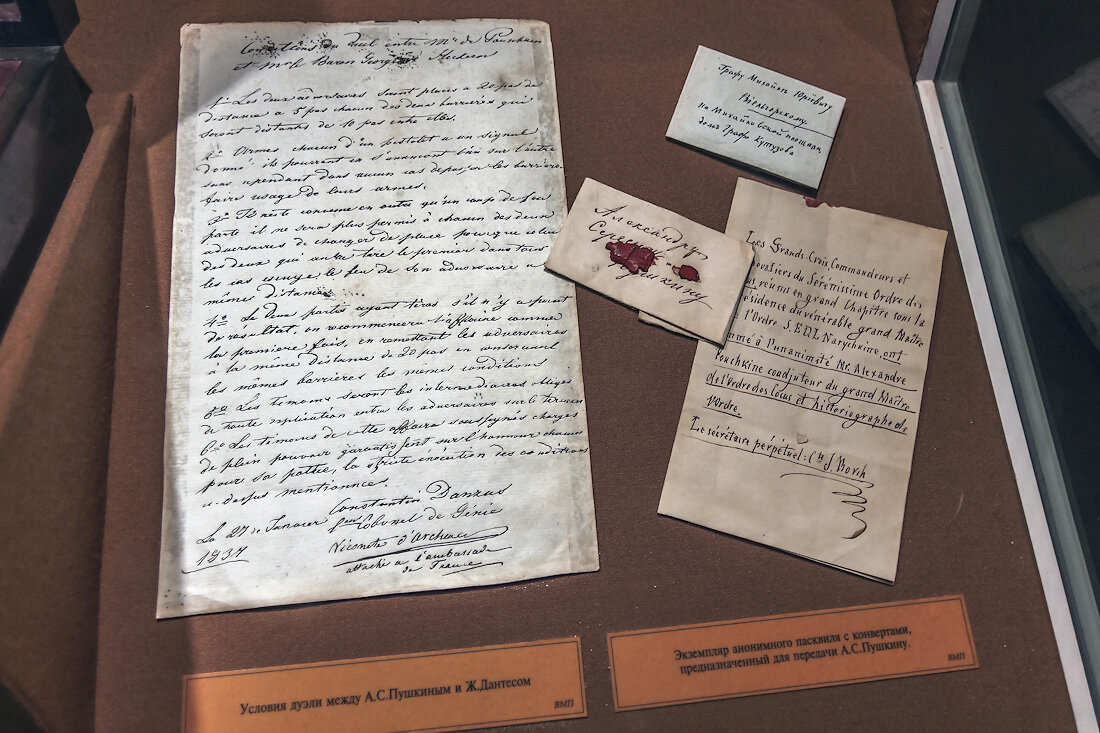 Conditions du duel entre Mr de Pouschkin
et Mr le Baron Georges Heckeren
1º Les deux adversaires seront placés à 20 pas de
distance à 5 pas chacun des deux barrières qui
seront distantes de 10 pas entre elles.
2º Armés chacun d'un pistolet à un signal
donné ils pourront en s'avançant l'un sur l'autre
sans cependant dans aucun cas dépasser les barrières
faire usage de leurs armes.
3º Il reste convenu en outre qu'un coup de feu
parti il ne sera plus permis à chacun des deux
adversaires de changer de place pour que celui
des deux qui aura tiré le premier dans tous
les cas essuye le feu de son adversaire à la
même distance.
4º Les deux parties ayant tirés s'il n'y a point
de résultat, on recommencera l'affaire comme
la première fois, en remettant les adversaires
à la même distance de 20 pas en conservant
les mêmes barrières les mêmes conditions
5º Les témoins seront les intermédiaires obligés
de toute explication entre les adversaires sur le terrain
6º Les témoins de cette affaire soussignés chargés
de plein pouvoir garantissent sur l'honneur chacun
pour sa partie, la stricte exécution des conditions
ci-dessus mentionnées.
Constantin Danzas
Le 27 Janvier
Lieut Colonel de Génie
1837
Vicomte d'Archiac
attaché à l'ambassade
de France
Графу Михайлѣ Юрiевичу
Вiельгорскому.
на Михайловской площади
домъ Графа Кутузова
Александру
Сергеичу
Пушкину
Les Grands-Croix, Commandeurs et
Chevaliers du Sérénissime Ordre des
réunis en grand Chapitre sous la
présidence du vénérable grand Maître
de l'Ordre S.E.D.L. Narychkine, ont
nommé à l'unanimité Mr. Alexandre
Pouchkine coadjuteur du grand Maître
de l'Ordre des Cocus et historiographe de
l'Ordre.
Le sécrétaire perpétuel: Cte J. Borch
Условия дуэли между А.С.Пушкиным и Ж.Дантесом
ВМП
Экземпляр анонимного пасквиля с конвертами,
предназначенный для передачи А.С.Пушкину.
ВМП